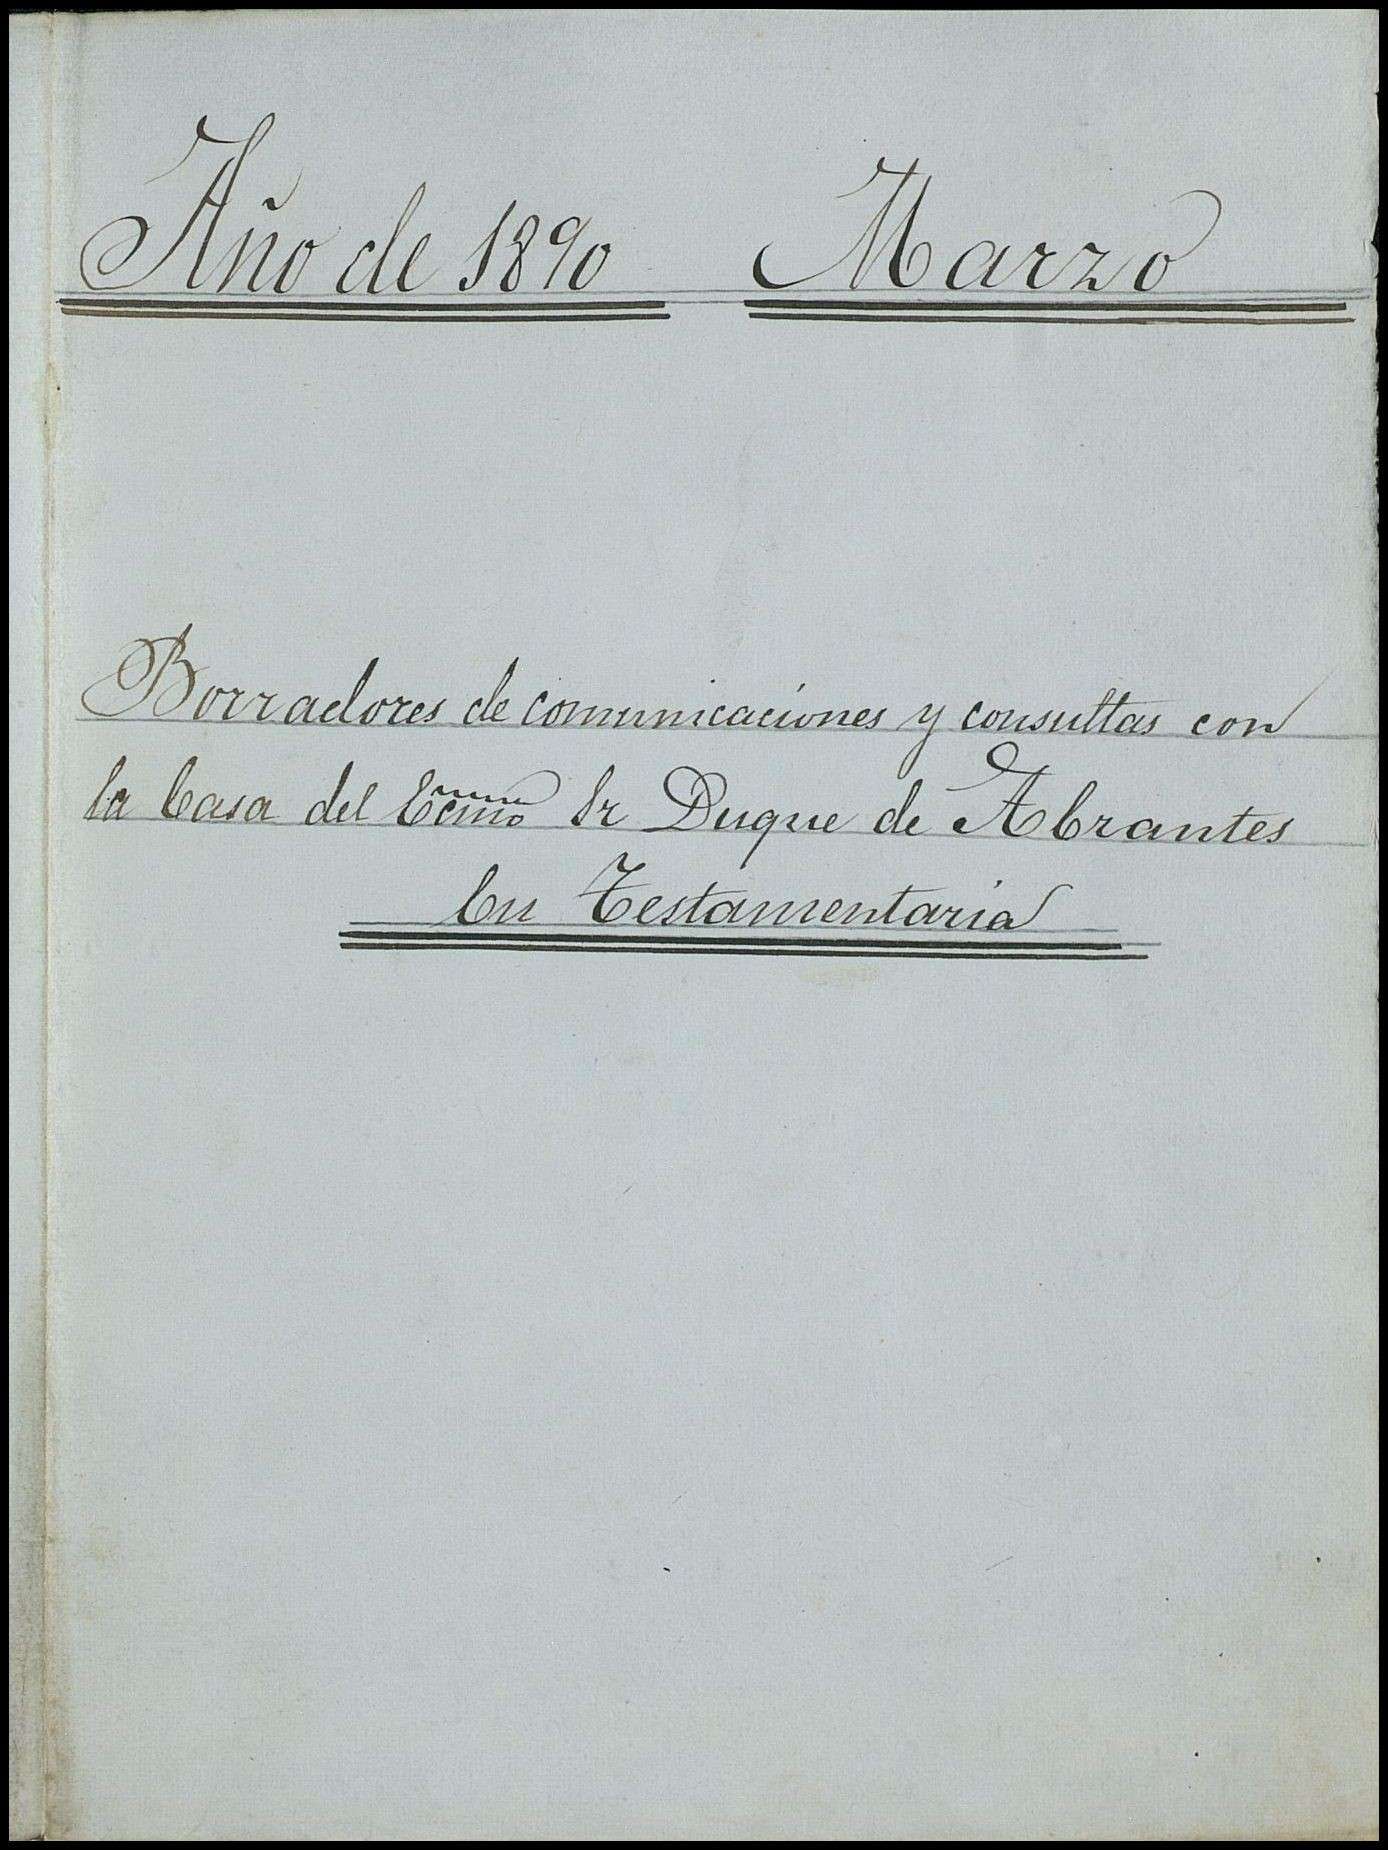 Año de 1890 Marzo
Borradores de comunicaciones y consultas con
la Casa del Ecmo Sr Duque de Abrantes
En Testamentaria